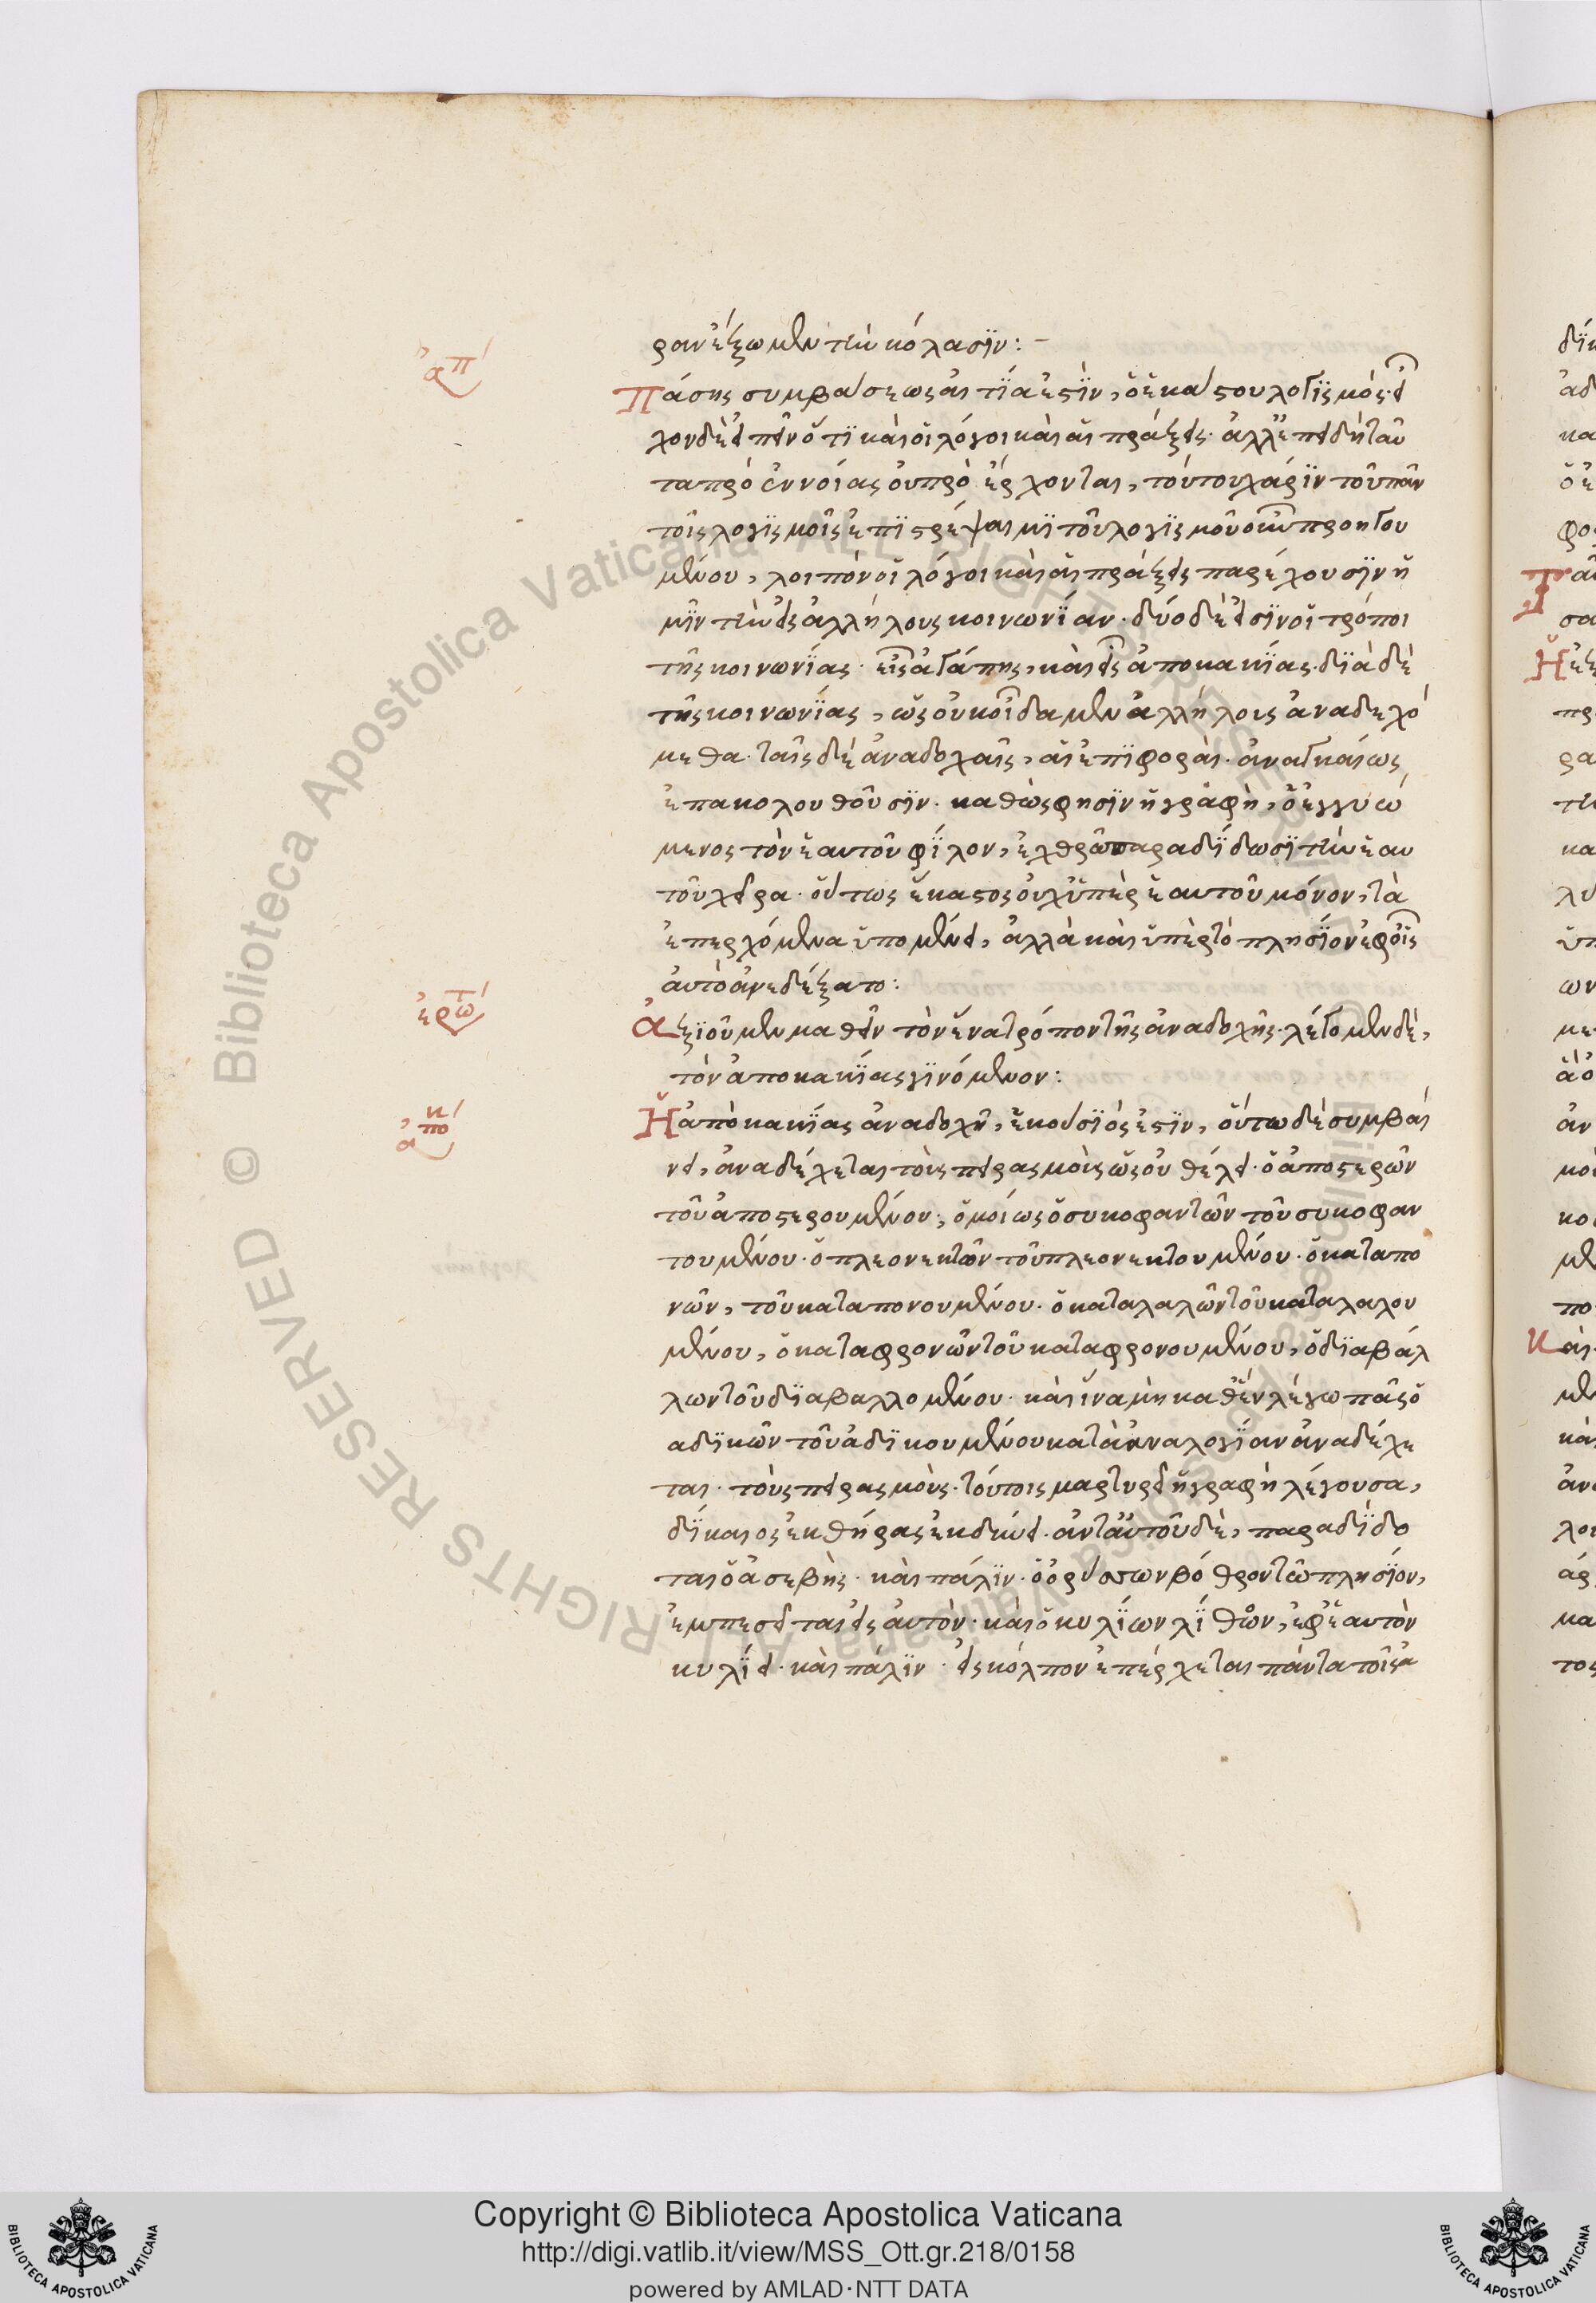 ρον ἕξωμεν τὴν κόλασϊν:-
ἀπ
Πάσης συμβάσεως αἰτϊα ἐστϊν, ὁ ἑκάστου λογϊσμός. εἶ
χον δὲ εἰπεῖν ὅτϊ καὶ οἱ λόγοι καὶ αἱ πράξεις. ἀλλ' ἐπειδὴ ταῦ
τα πρὸ ἐννοίας οὐ προέρχονται, τούτου χάρϊν τοῦ πᾶν
τοῖς λογϊσμοῖς ἐπϊστρέψαι μϊ τοῦ λογϊσμοῦ οὖν προηγου
μένου, λοιπὸν οἱ λόγοι καὶ αἱ πράξεις παρέχουσϊν ἡ
μϊν τὴν εἰς ἀλλήλους κοινωνΐαν. δύο δὲ εἰσϊν οἱ τρόποι
τῆς κοινωνΐας. εἷς ἀγάπης, καὶ εἷς ἀπο κακΐας. δϊὰ δὲ
τῆς κοινωνΐας, ὡς οὐκ οἴδαμεν ἀλλήλοις ἀναδεχό
μεθα. ταῖς δὲ ἀναδοχαῖς, αἱ ἐπϊφοραὶ. ἀναγκαίως
ἐπακολουθοῦσϊν. καθὼς φησϊν ἡ γραφὴ, ὁ ἐγγυώ
μενος τὸν ἑαυτοῦ φΐλον, ἐχθρῶ παραδΐδωσϊ τὴν ἑαυ
τοῦ χεῖρα. οὕτως ἕκαστος οὐχ ὑπὲρ ἑαυτοῦ μόνον, τὰ
ἐπερχόμενα ὑπομένει, ἀλλὰ καὶ ὑπὲρ τὸ πλησΐον ἐφ οἷς
αὐτὸ ἀνεδέξατο:
ἐρώτ
ἀξϊοῦμεν μαθεῖν τὸν ἕνα τρόπον τῆς ἀναδοχῆς. λέγομεν δὲ,
τὸν ἀπο κακΐας γϊνόμενον:
ἀπόκ
Ἡ ἀπὸ κακΐας ἀναδοχὴ, ἑκούσϊός ἐστϊν, οὕτω δὲ συμβαί
νει, ἀναδέχεται τοὶς πειρασμοὶς ὡς οὐ θέλει. ὁ ἀποστερῶν
τοῦ ἀποστερουμένου, ὁμοίως ὁ συκοφαντῶν τοῦ συκοφαν
τουμένου. ὁ πλεονεκτῶν τοῦ πλεονεκτουμένου. ὁ καταπο
νῶν, τοῦ καταπονουμένου. ὁ καταλαλῶν τοῦ καταλαλου
μένου, ὁ καταφρονῶν τοῦ καταφρονουμένου, ὁ δϊαβάλ
λων τοῦ δϊαβαλλομένου. καὶ ἵνα μὴ καθ' ἓν λέγω πᾶς ὁ
αδϊκῶν τοῦ ἀδϊκουμένου κατὰ ἀναλογΐαν ἀναδέχε
ται. τοὺς πειρασμοὺς. τούτοις μαρτυρεῖ ἡ γραφὴ λέγουσα,
δΐκαιος ἐκ θήρας ἐκδύνει. ἀντ' αὐτοῦ δὲ, παραδΐδο
ται ὁ ἀσεβὴς. καὶ πάλϊν. ὁ ὀρύσσων βόθρον τῶ πλησΐον,
ἐμπεσεῖται εἰς αὐτὸν. καὶ ὁ κυλΐων λΐθον, ἐφ ἑαυτὸν
κυλΐει. καὶ πάλϊν. εἰς κόλπον ἐπέρχεται πάντα τοῖς ἀ